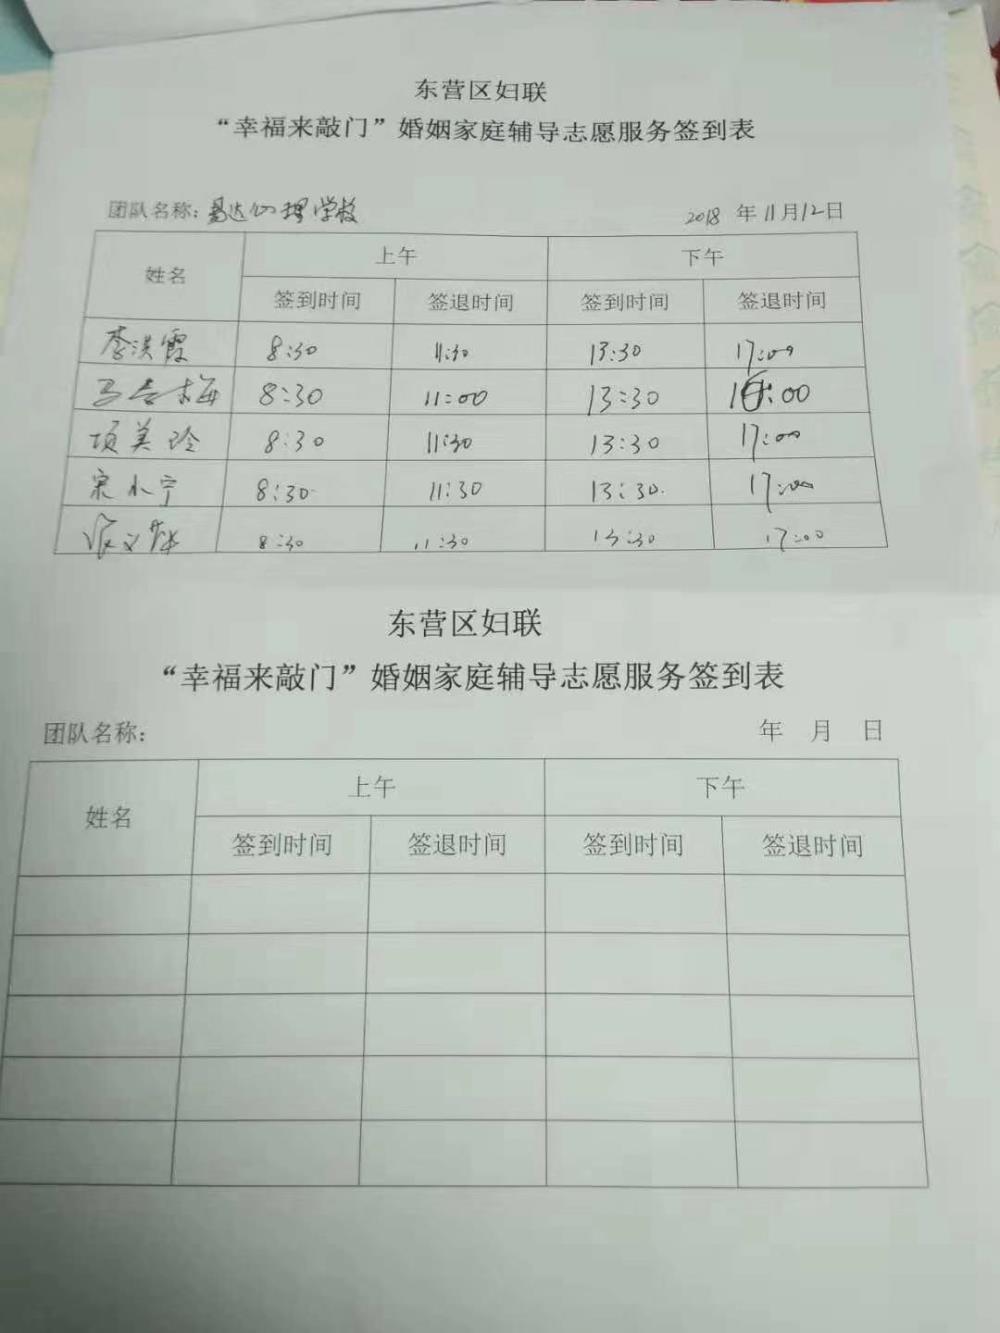 东营区妇联
“幸福来敲门”婚姻家庭辅导志愿服务签到表
团队名称：易达心理学校 2018 年 11 月 12 日
姓名 上午 下午
签到时间 签退时间 签到时间 签退时间
李洪霞 8:30 11:30 13:30 17:00
马 梅 8:30 11:00 13:30 :00
项美玲 8:30 11:30 13:30 17:00
宋小宁 8:30 11:30 13:30 17:00
张文 8:30 11:30 13:30 17:00
东营区妇联
“幸福来敲门”婚姻家庭辅导志愿服务签到表
团队名称： 年 月 日
姓名 上午 下午
签到时间 签退时间 签到时间 签退时间